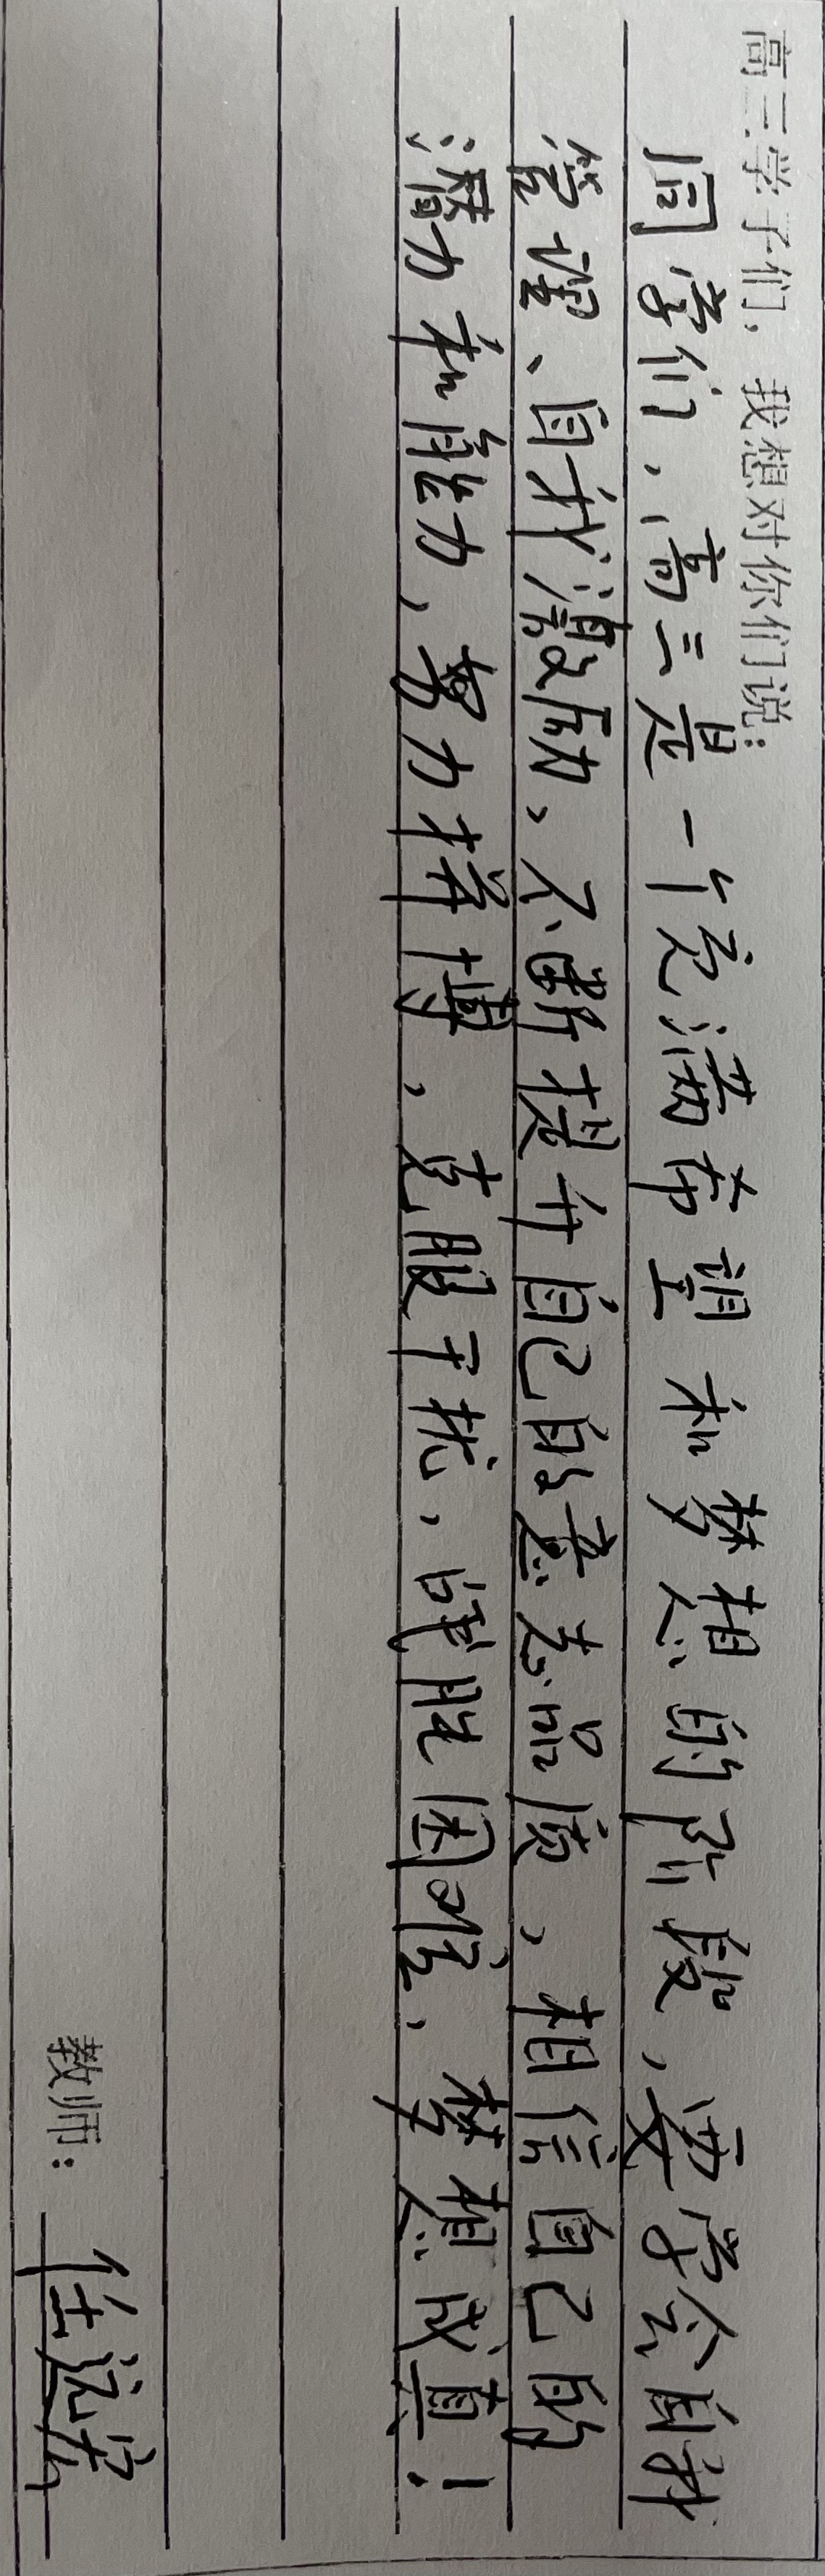 高三学子们，我想对你们说：
同学们，高三是一个充满希望和梦想的阶段，要学会自我
管理、自我激励、不断提升自己的意志品质，相信自己的
潜力和能力，努力拼搏，克服干扰，战胜困难，梦想成真！
教师：任远宏